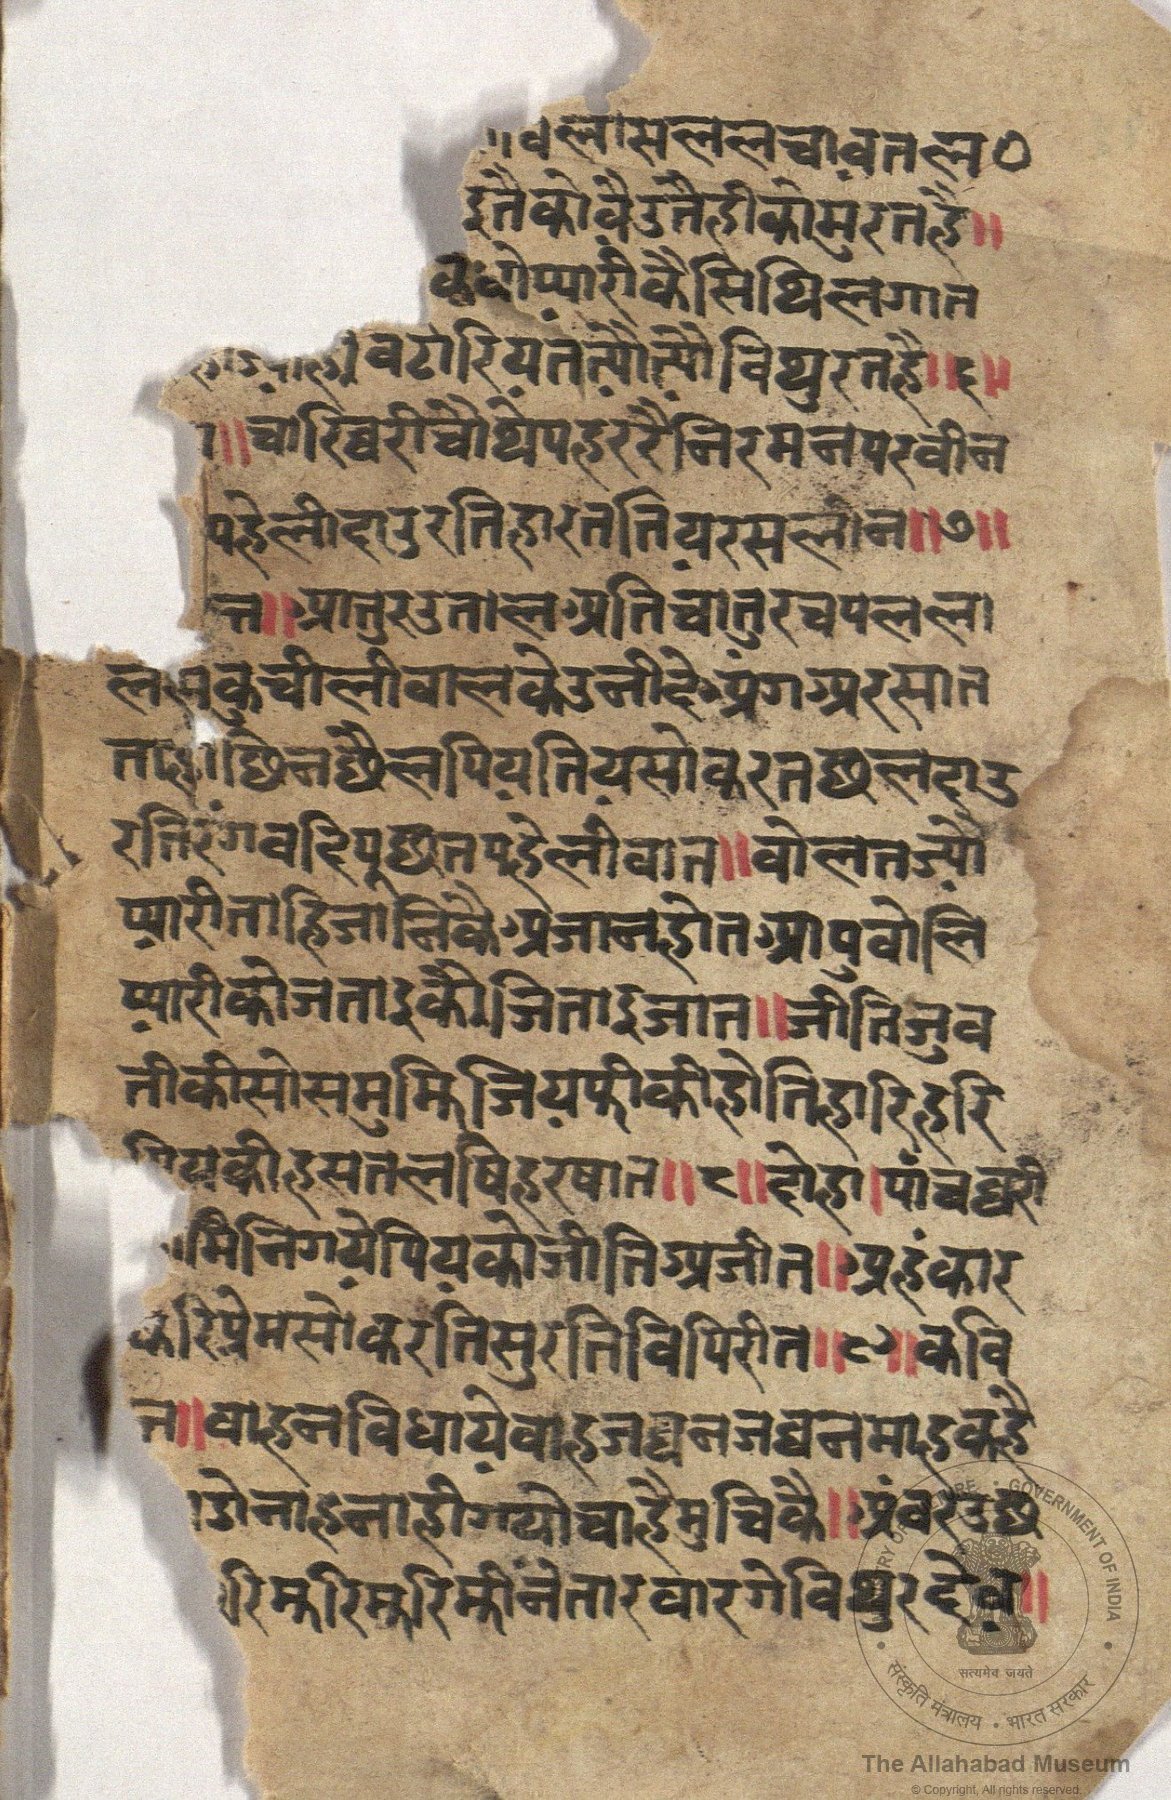 वलासललचावतल०
इतैकोवैउतैहीकोमुरतहै॥
प्यारीकैसिथिलगात
वटारियतत्यौत्यौविथुरतहै॥६॥
॥चारिघरीचौथेपहररैनिरमनपरवीन
पहेलीदाउरतिहारततियरसलीन॥७॥
त्त॥प्रातुरउतालअतिचातुरचपलला
लसकुचीलीवालकेउनीदेअंगअरसात
छिनछैलपियतियसोकरतछलदाउ
रतिरंगवदिपूछतपहेलीवात॥वोलतज्यौ
प्यारीताहिजानिकैअजानहोतआपुवोलि
प्यारीकौजताइकैौजिताइजात॥जीतिजुव
तीकीसोसमुझिजियफीकीहोतिहारिहरि
पियकीहसतलषिहरषात॥८॥दोहा।पाँचघरी
मिनिगयेपियकोजीतिअजीत॥अहंकार
करिप्रेमसोकरतिसुरतिविपिरीत॥९॥कवि
त्त॥वाहनविधायेवाहजघनजघनमाहकहै
डोनाहनाहीगयोचाहैमुचिकै॥अंवरउछ
रिझरिझरिझीनेतारवारगेविथुरदेत॥
संस्कृति मंत्रालय • भारत सरकार
MINISTRY OF CULTURE • GOVERNMENT OF INDIA
सत्यमेव जयते
The Allahabad Museum
© Copyright, All rights reserved.